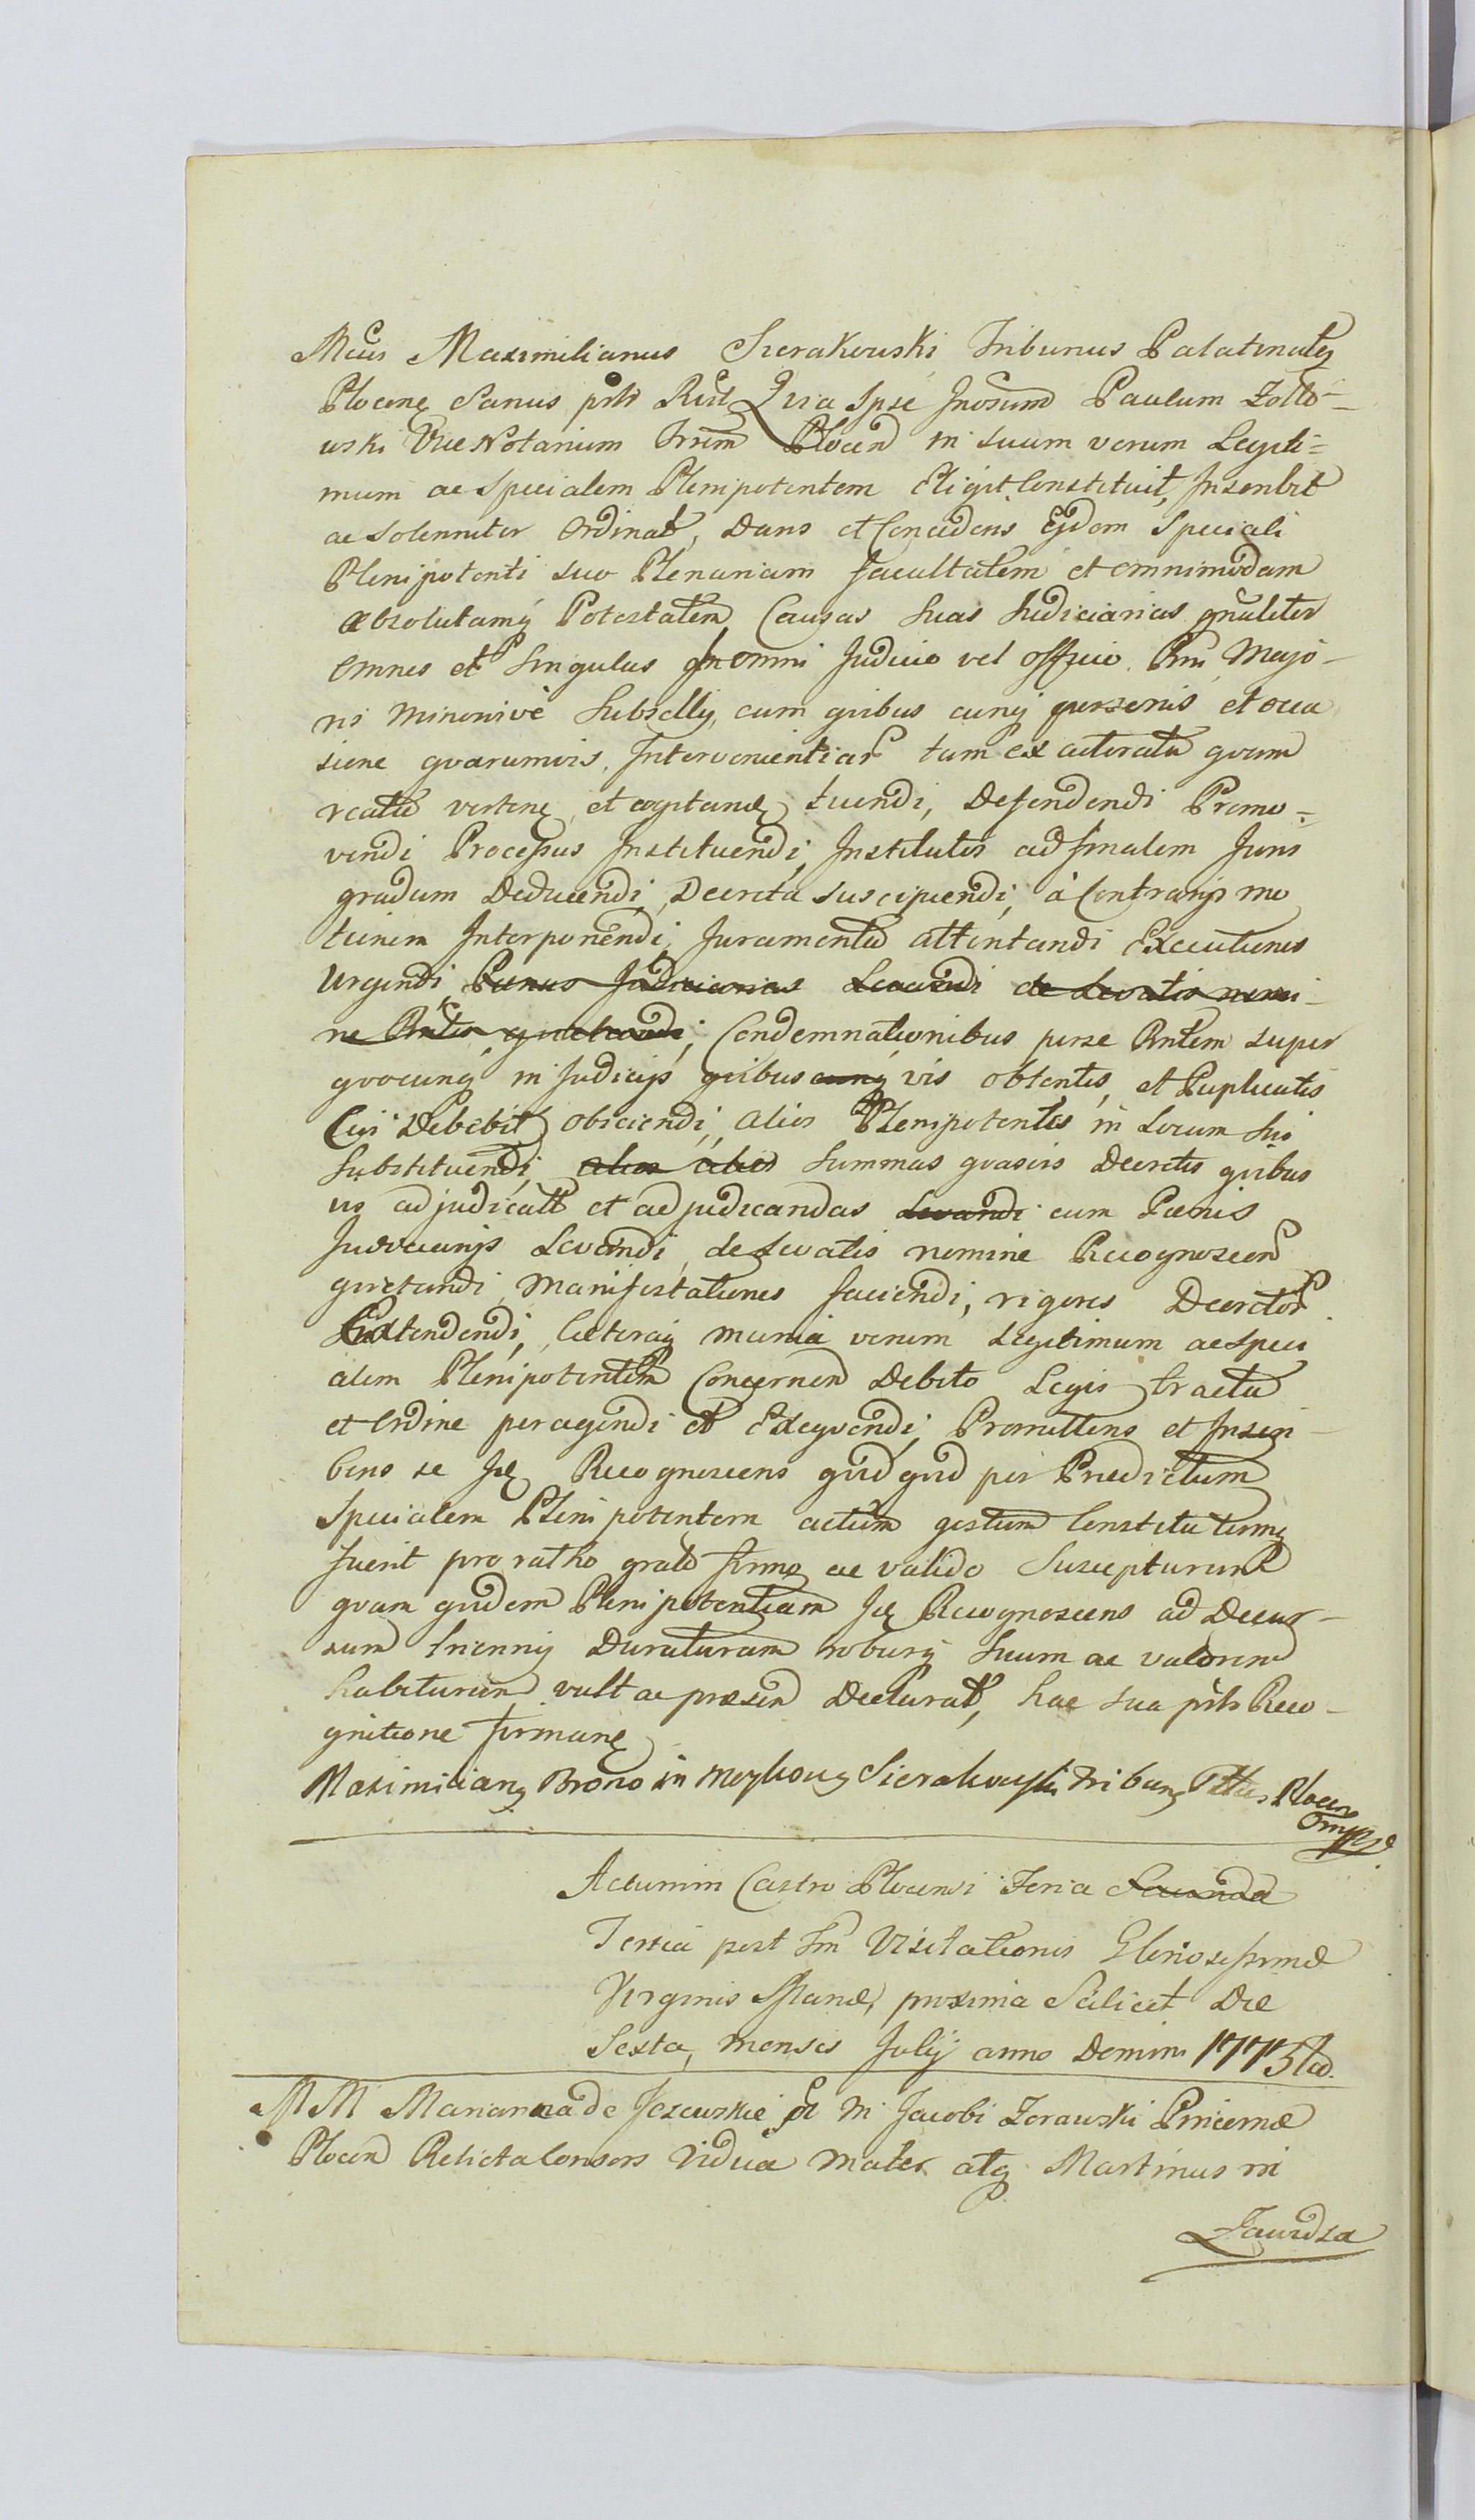 Mcus Maximilianus Sierakowski Tribunus Palatinatq
Plocenę Sanus pśts Rcsł Qvia Ipse Gnosum Paulum Zołto-
wski ViceNotarium Trrem Plocen in suum verum Legiti=
mum ac Specialem Plenipotentem Eligit Constituit, Inscribit
ac Solenniter Ordinat, Dans et Concedens Ejdem Speciali
Plenipotenti suo Plenariam facultatem et omnimodam
absolutamq Potestatem Causas Suas Judiciarias gnaliter
Omnes et Singulas In omni Judicio vel officio Rni Majo-
ris Minorisve Subsellij, cum qvibus cunq personis et occa
sione qvarumvis Intervenientiar tam ex actoratu qvam
reatu vertenę et agitandę tuendi, Defendendi Promo=
vendi Processus Instituendi, Institutos ad finalem Juris
gradum Deducendi, Decreta suscipiendi, à Contrarijs mo
tionem Interponendi, Juramenta attentandi Executiones
Urgendi Paenas Judiciarias Levandi de Levatis nomi-
ne Rntis qvietandi, Condemnationibus perse Rntem super
qvocunq in Judicijs qvibuscunq vis obtentis, et Publicatis
Cui Debebit obiciendi, alios Plenipotentes in Locum Sui
Substituendi, alios alios Summas qvasvis Decretis qvibus
vis adjudicatt et adjudicandas Levandi cum Paenis
Judiciarijs Levandi, de Levatis nomine Recognoscen
qvietandi Manifestationes faciendi, rigores Decretor
Extendendi, Caeteraq munia verum Legitimum ac Speci
alem Plenipotentem Concernen Debito Legis tractu
et Ordine peragendi et Exeqvendi, Promittens et Inscri-
bens se Idę Recognoscens qvidqvid per Praedictum
Specialem Plenipotentem actum gestum Constitutumq
fuerit pro ratho grato firmo ac valido Suscepturum
qvam qvidem Plenipotentiam Idę Recognoscens ad Decur-
sum triennij Duraturam roburq Suum ac valorem
habituram vult ac praesen Declarat, hac sua pśts Reco-
gnitione firmanę
Maximilianq Brono in Sierakowski Tribunq Pttus Plocen
mpp
Actum in Castro Plocensi Feria Secunda
Tertia post Fm Visitationis Gloriosissimae
Virginis Mariae, proxima Scilicet Die
Sexta, mensis Julij anno Domini 1773tio.
M M Marianna de Jezewskie ol M Jacobi Zorawski Pincernae
Plocen Relicta Consors Vidua Mater atq Martinus in
Zawidza